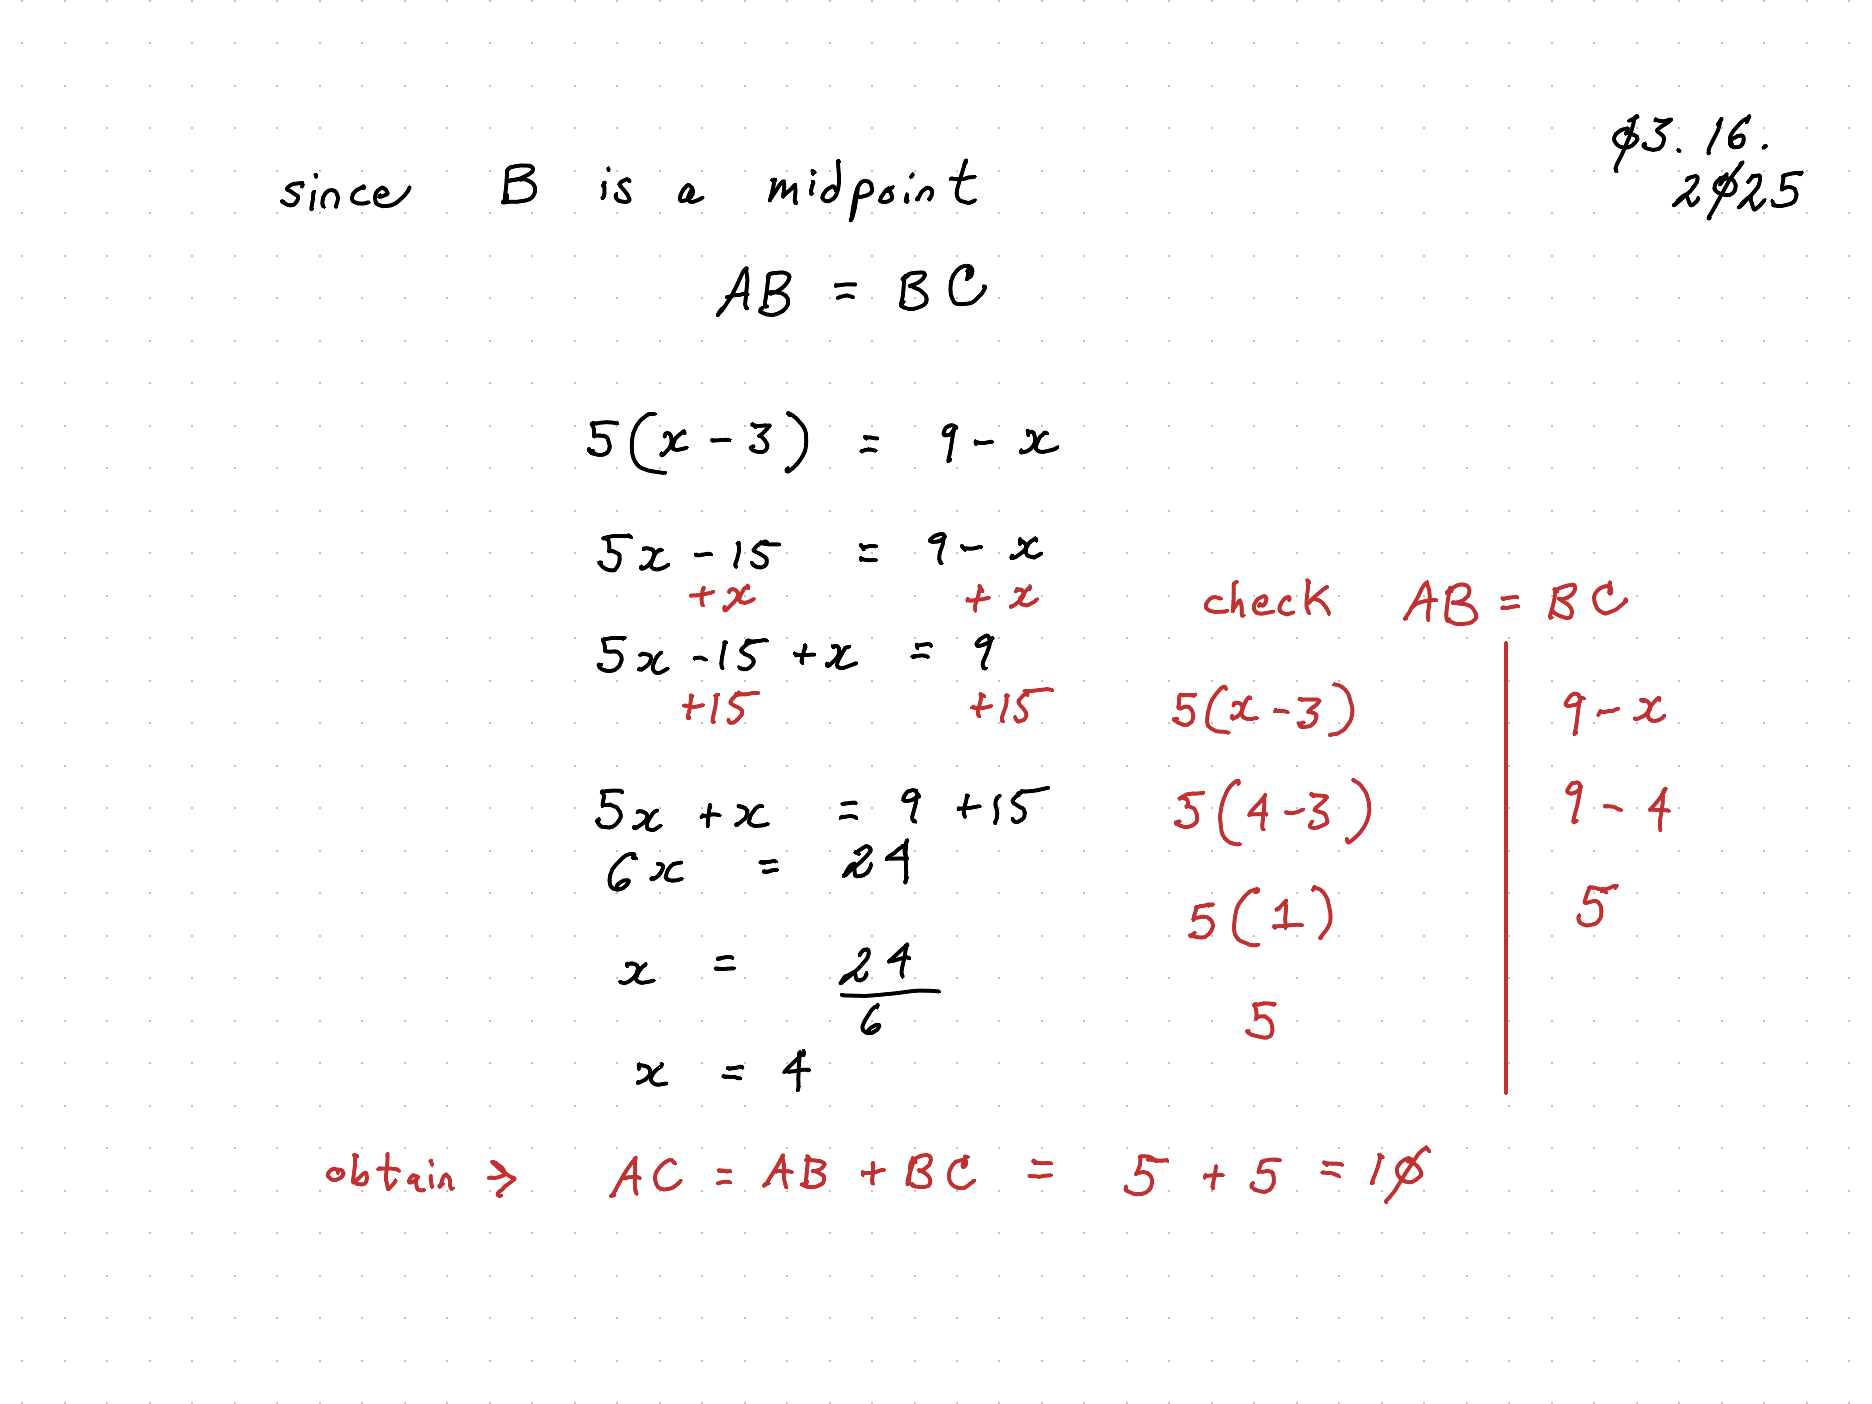 ø3. 16.
2ø25
since B is a midpoint
AB = BC
5(x - 3) = 9 - x
5x - 15 = 9 - x
+x + x
5x - 15 + x = 9
+15 +15
5x + x = 9 + 15
6x = 24
x = 24/6
x = 4
check AB = BC
5(x - 3) 9 - x
5(4 - 3) 9 - 4
5(1) 5
5
obtain → AC = AB + BC = 5 + 5 = 1ø